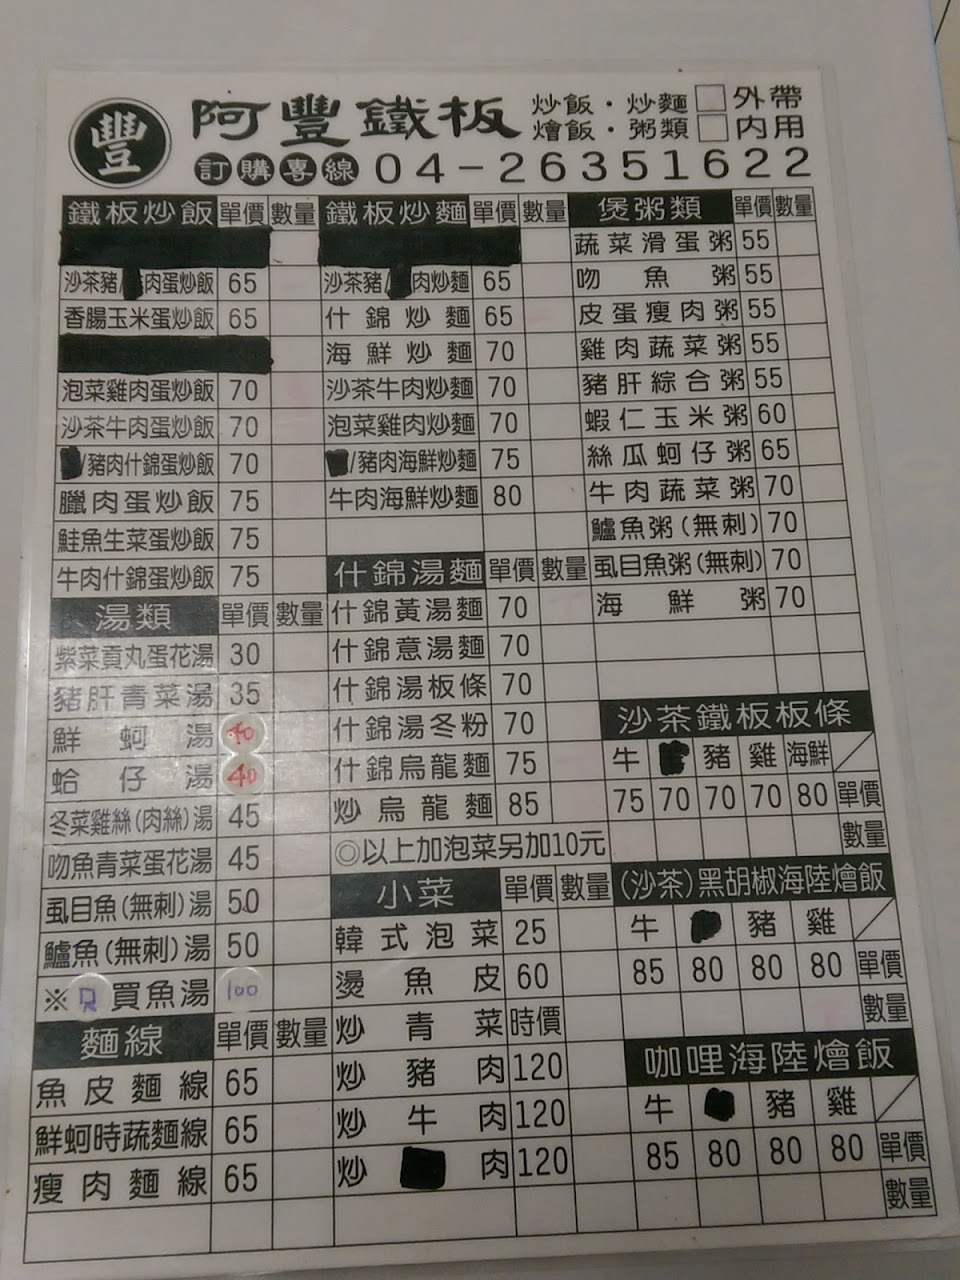 豐
阿豐鐵板
炒飯·炒麵 □外帶
燴飯·粥類 □內用
訂購專線 04-26351622
鐵板炒飯 單價 數量
沙茶豬/肉蛋炒飯 65
香腸玉米蛋炒飯 65
泡菜雞肉蛋炒飯 70
沙茶牛肉蛋炒飯 70
/豬肉什錦蛋炒飯 70
臘肉蛋炒飯 75
鮭魚生菜蛋炒飯 75
牛肉什錦蛋炒飯 75
湯類 單價 數量
紫菜貢丸蛋花湯 30
豬肝青菜湯 35
鮮蚵湯 40
蛤仔湯 40
冬菜雞絲(肉絲)湯 45
吻魚青菜蛋花湯 45
虱目魚(無刺)湯 50
鱸魚(無刺)湯 50
※只買魚湯 100
麵線 單價 數量
魚皮麵線 65
鮮蚵時蔬麵線 65
瘦肉麵線 65
鐵板炒麵 單價 數量
沙茶豬/肉炒麵 65
什錦炒麵 65
海鮮炒麵 70
沙茶牛肉炒麵 70
泡菜雞肉炒麵 70
/豬肉海鮮炒麵 75
牛肉海鮮炒麵 80
什錦湯麵 單價 數量
什錦黃湯麵 70
什錦意湯麵 70
什錦湯板條 70
什錦湯冬粉 70
什錦烏龍麵 75
炒烏龍麵 85
◎以上加泡菜另加10元
小菜 單價 數量
韓式泡菜 25
燙魚皮 60
炒青菜 時價
炒豬肉 120
炒牛肉 120
炒肉 120
煲粥類 單價 數量
蔬菜滑蛋粥 55
吻魚粥 55
皮蛋瘦肉粥 55
雞肉蔬菜粥 55
豬肝綜合粥 55
蝦仁玉米粥 60
絲瓜蚵仔粥 65
牛肉蔬菜粥 70
鱸魚粥(無刺) 70
虱目魚粥(無刺) 70
海鮮粥 70
沙茶鐵板板條
牛 豬 雞 海鮮
75 70 70 70 80 單價
數量
(沙茶)黑胡椒海陸燴飯
牛 豬 雞
85 80 80 80 單價
數量
咖哩海陸燴飯
牛 豬 雞
85 80 80 80 單價
數量